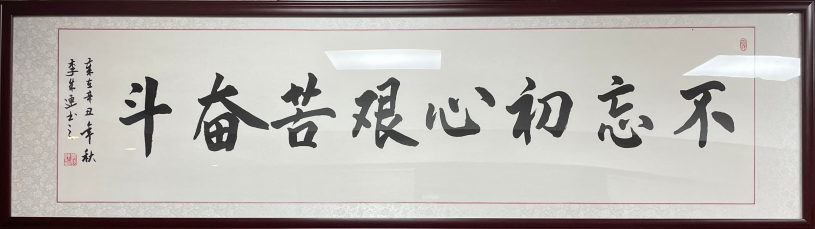 不忘初心艰苦奋斗
岁在辛丑年秋